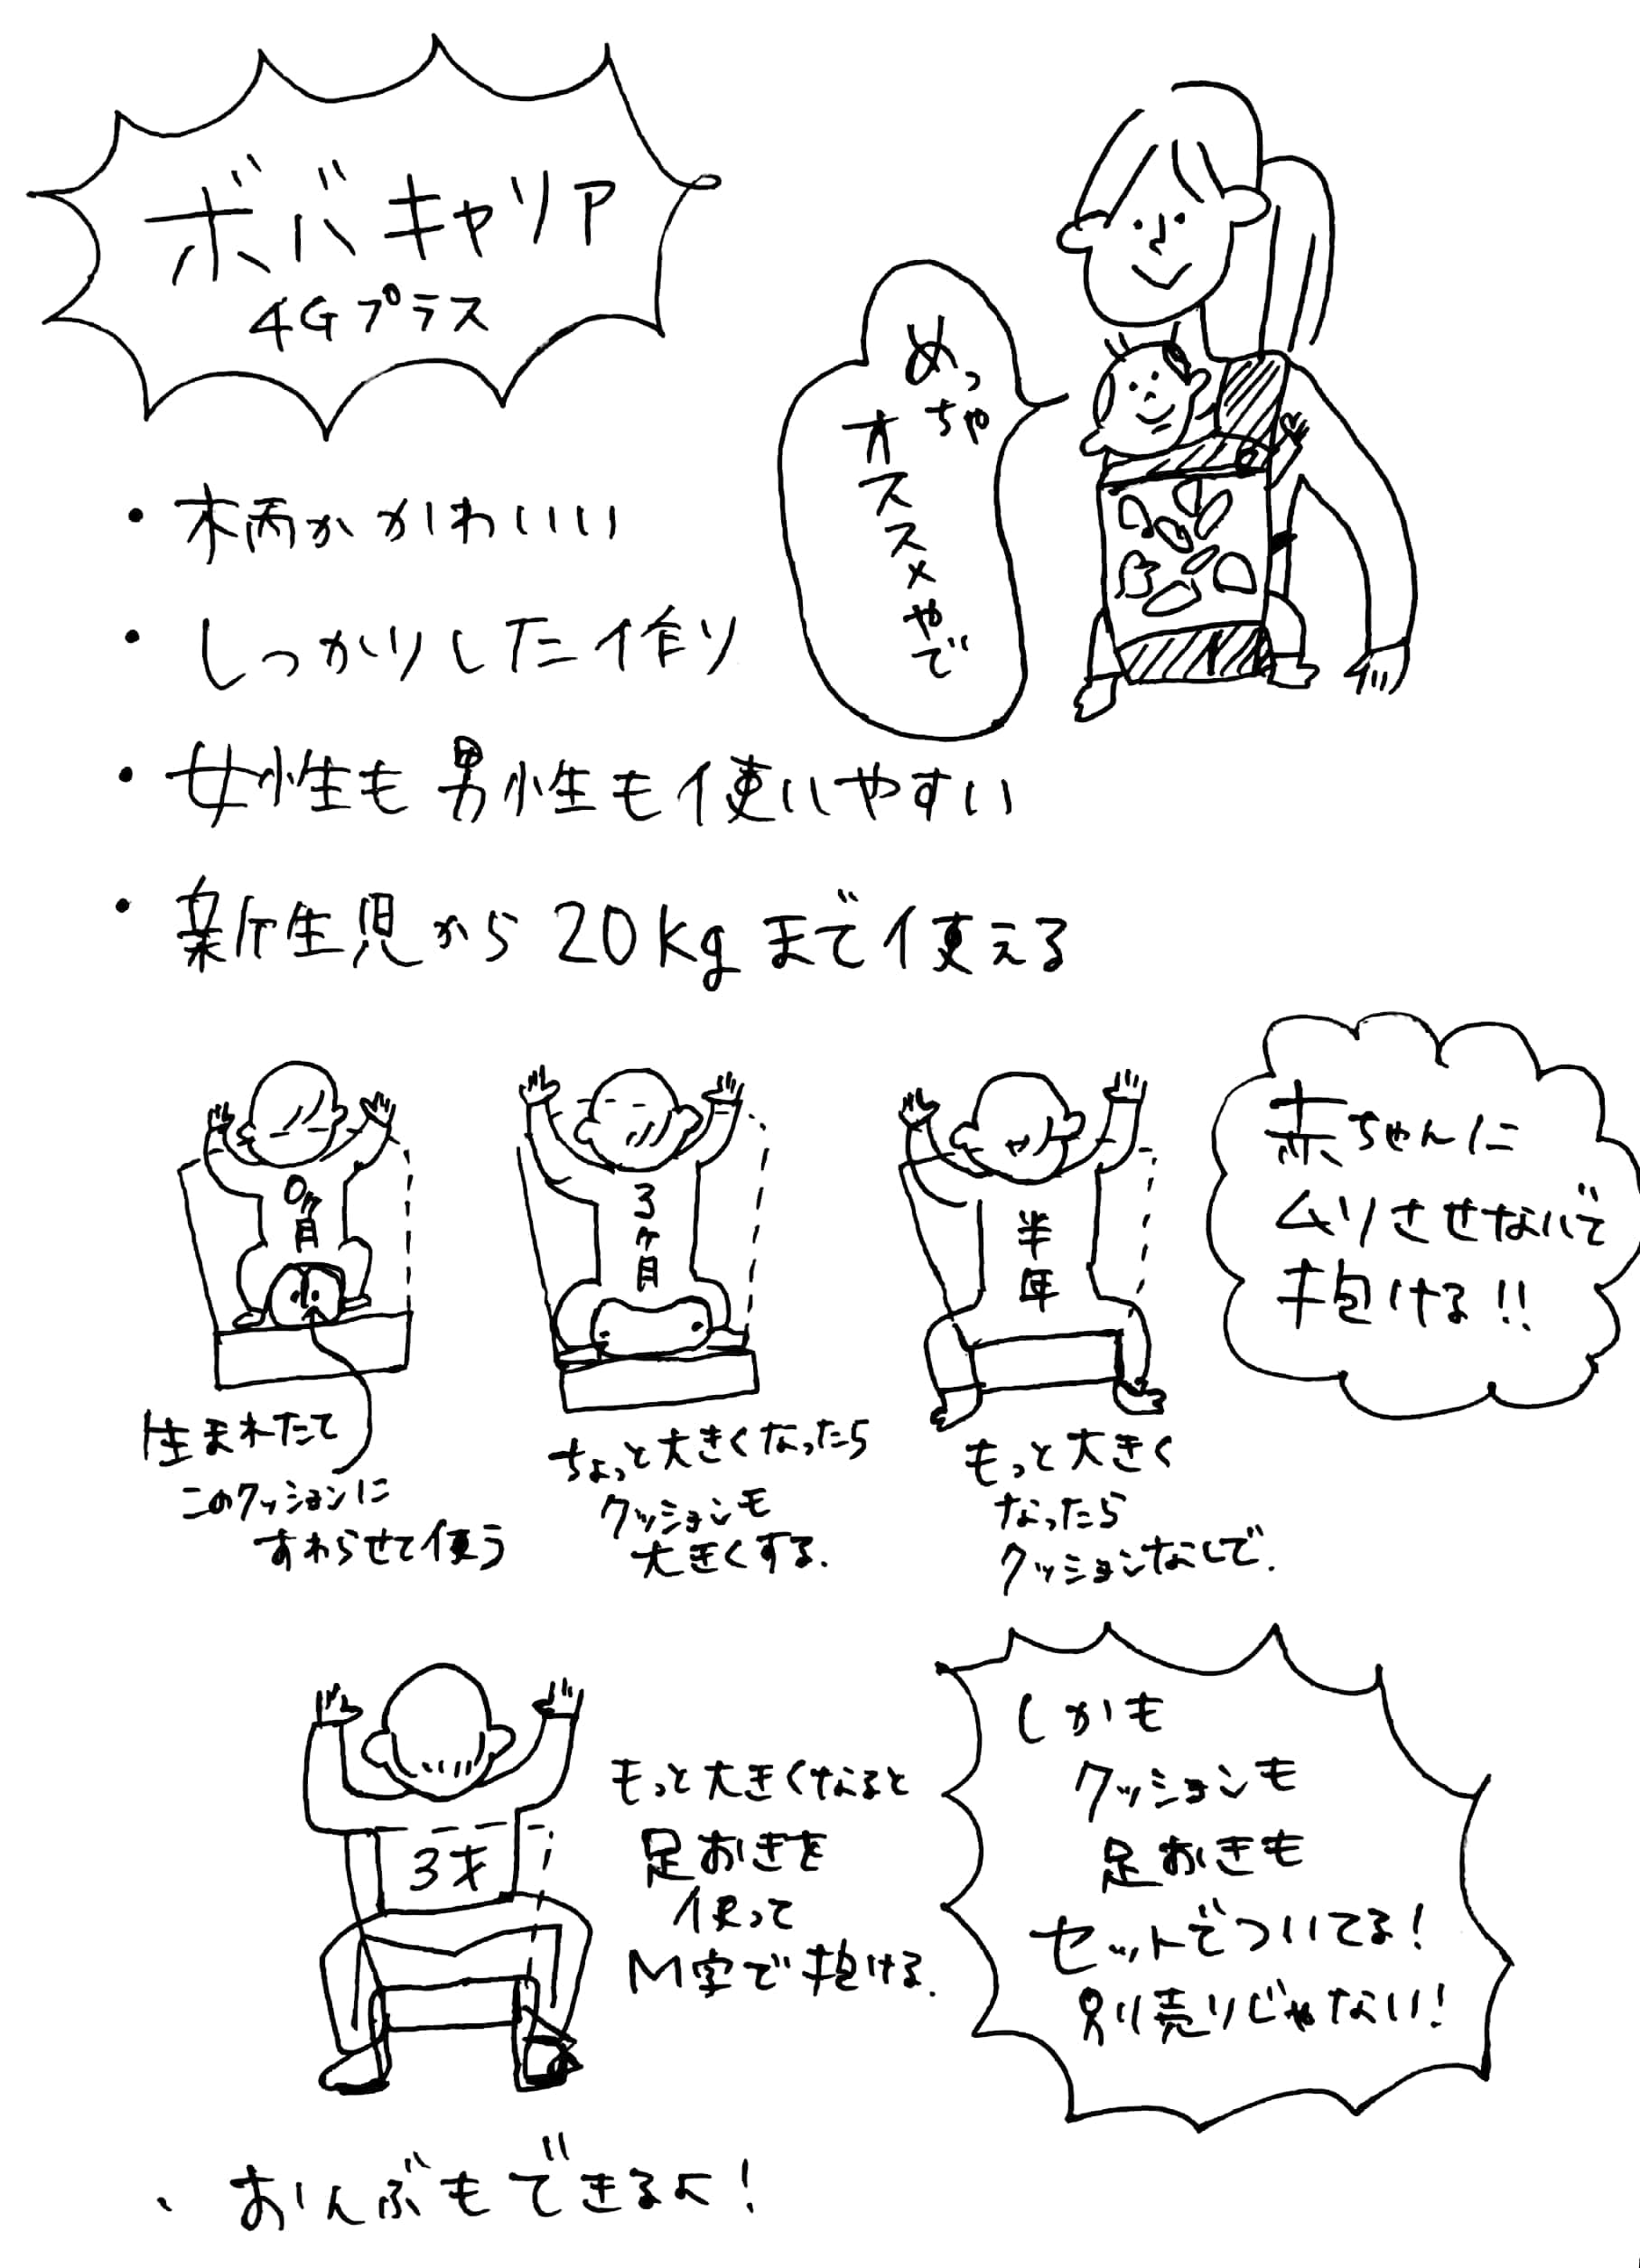 ボバキャリア
4Gプラス
めっちゃ
オススメやで
・柄がかわいい
・しっかりした作り
・女性も男性も使いやすい
・新生児から20kgまで使える
0ヶ月
3ヶ月
半年
赤ちゃんに
ムリさせないで
抱ける!!
生まれたて
このクッションに
すわらせて使う
ちょっと大きくなったら
クッションも
大きくする.
もっと大きく
なったら
クッションなしで.
3才
もっと大きくなると
足おきを
使って
M字で抱ける.
しかも
クッションも
足おきも
セットでついてる!
別売りじゃない!
、おんぶもできるよ!